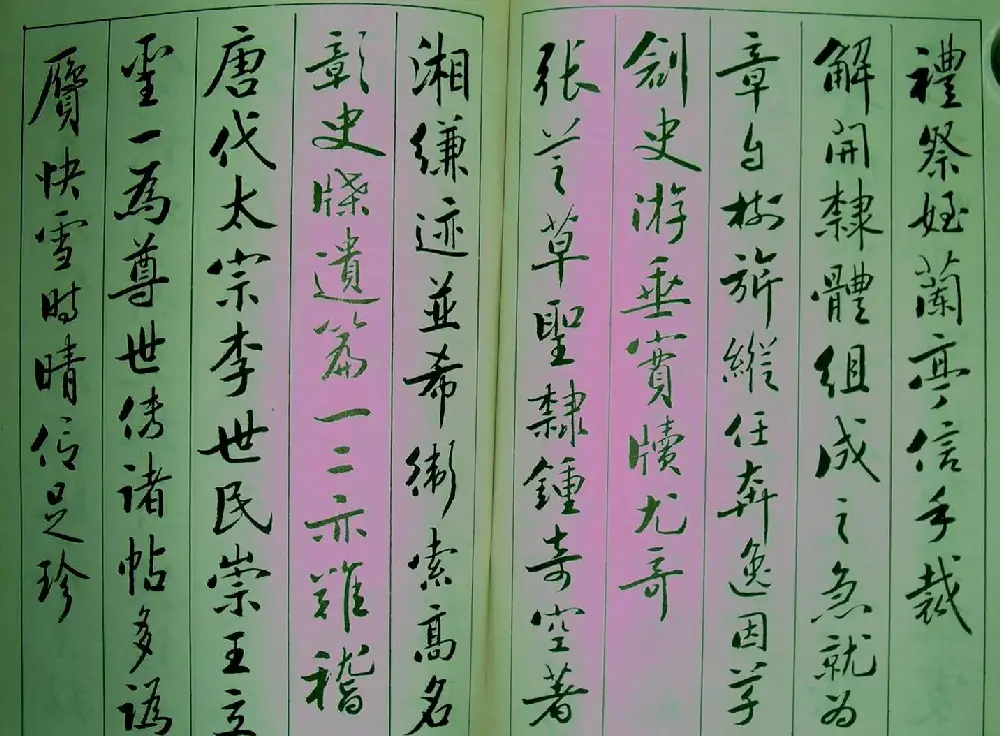 禮祭姪蘭亭信手裁
解開隸體組成之急就為
章自樹旂縱任奔逸因草
創史游垂實牘尤奇
張芝草聖隸鍾奇空著
湘縑迹並希衛索高名
彰史牒遺篇一二亦難稽
唐代太宗李世民崇王立
聖一為尊世傳諸帖多譌
贋快雪時晴信足珍